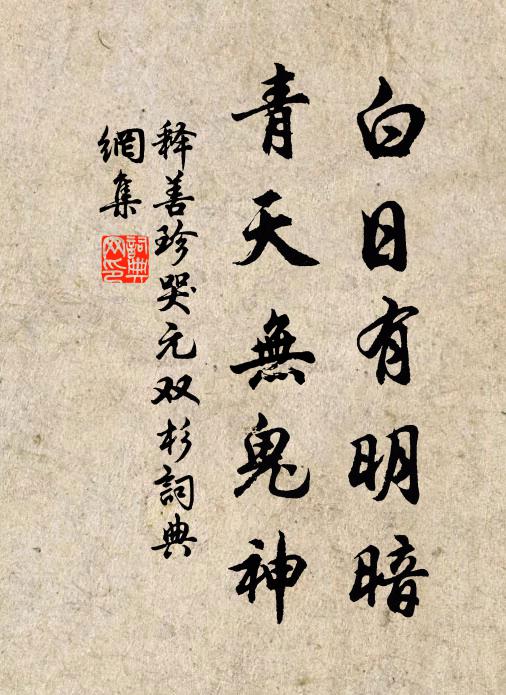 白日有明暗
青天無鬼神
释善珍哭元双杉詞典
網集
詞典
网印